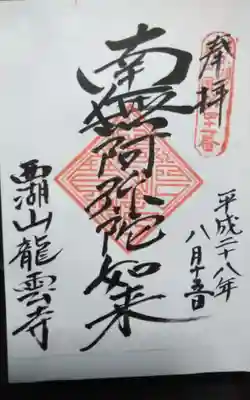 奉拝
平成二十八年
八月十五日
南無阿弥陀如来
西湖山龍雲寺